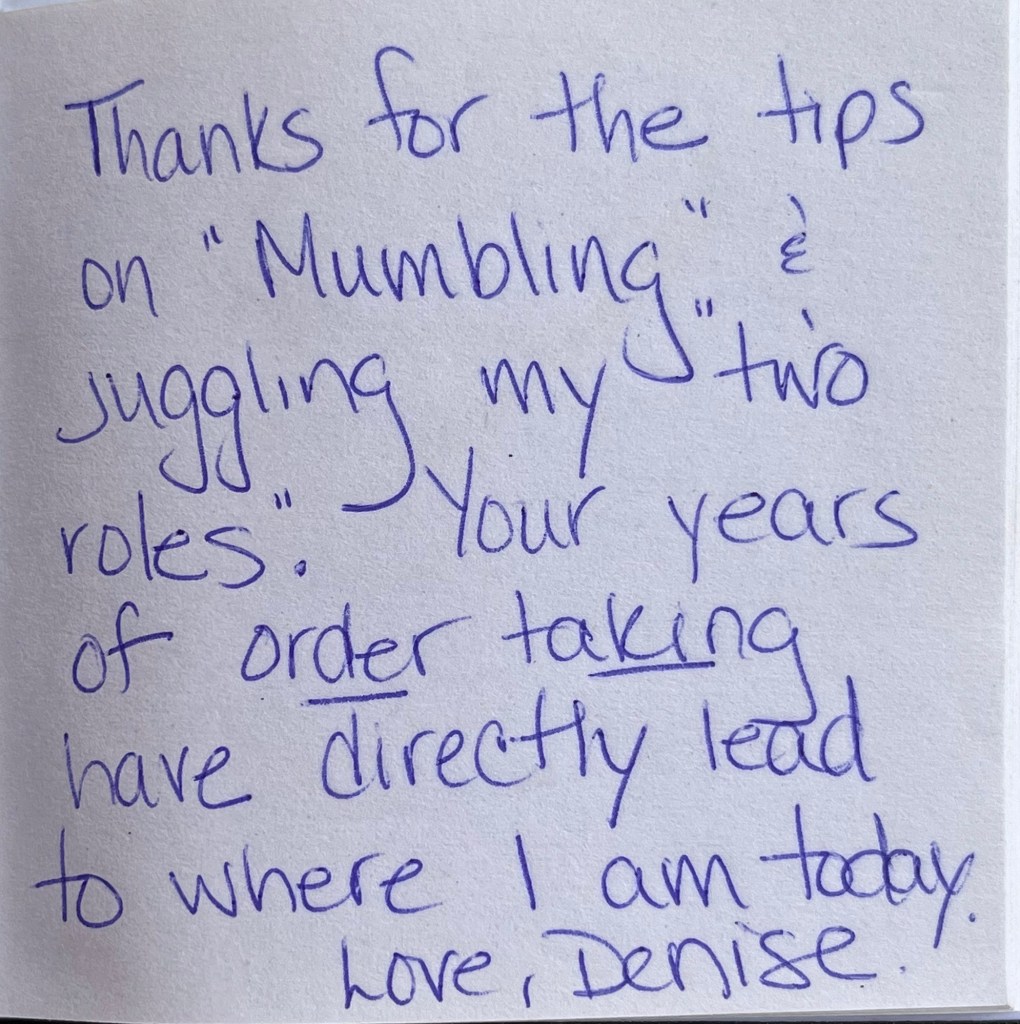 Thanks for the tips
on "Mumbling" &
juggling my "two
roles". Your years
of order taking
have directly lead
to where I am today.
Love, Denise.